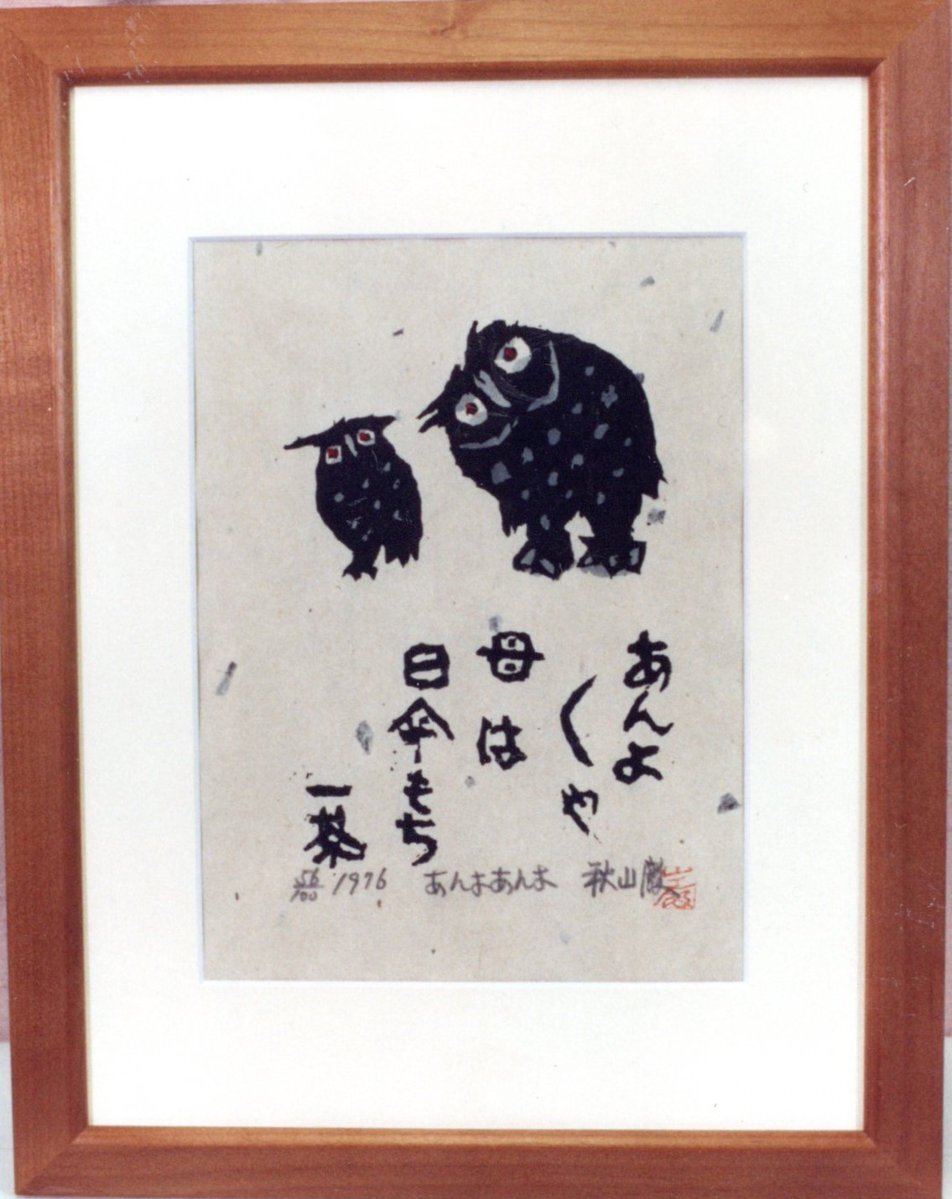 あんよ
〱や
母は
日傘もち
一茶
56/100 1976 あんよあんよ 秋山巌